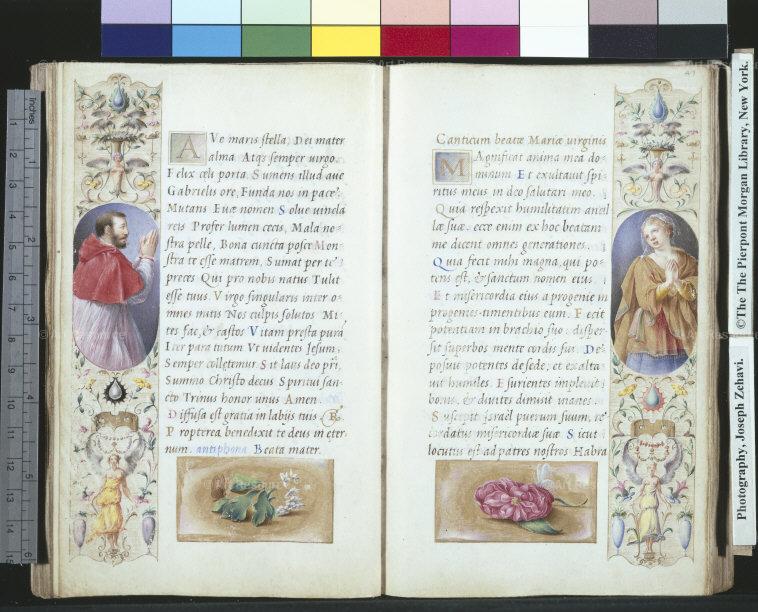 A Ve maris stella, Dei mater
alma, Atqꝫ semper uirgo.
Felix cœli porta. Sumens illud aue
Gabrielis ore, Funda nos in pace.
Mutans Euæ nomen Solue uincla
reis Profer lumen cecis, Mala no-
stra pelle, Bona cuncta posce Mon-
stra te esse matrem, Sumat per te
preces Qui pro nobis natus Tulit
esse tuus. Virgo singularis inter o-
mnes mitis Nos culpis solutos Mi-
tes fac, & castos Vitam presta purã
Iter para tutum Vt uidentes Iesum,
Semper colletemur Sit laus deo pr̃i,
Summo Christo decus Spiritui san-
cto Trinus honor unus Amen.
Diffusa est gratia in labijs tuis. R.
Propterea benedixit te deus in eter-
num. antiphona. Beata mater.
Canticum beatæ Mariæ uirginis
M Agnificat anima mea do-
minum Et exultauit spi-
ritus meus in deo salutari meo.
Quia respexit humilitatem ancil
læ suæ. ecce enim ex hoc beatam
me dicent omnes generationes.
Quia fecit mihi magna, qui po-
tens est, & sanctum nomen eius
Et misericordia eius a progenie in
progenies timentibus eum. Fecit
potentiam in brachio suo, disper-
sit superbos mente cordis sui. De-
posuit potentes de sede, et exalta-
uit humiles. Esurientes impleuit
bonis, & diuites dimisit inanes.
Suscepit Israel puerum suum, re-
cordatus misericordiæ suæ Sicut
locutus est ad patres nostros Habra
Inches
1
2
3
4
5
6
1
2
3
4
5
6
7
8
9
10
11
12
13
14
15
©The The Pierpont Morgan Library, New York.
Photography, Joseph Zehavi.